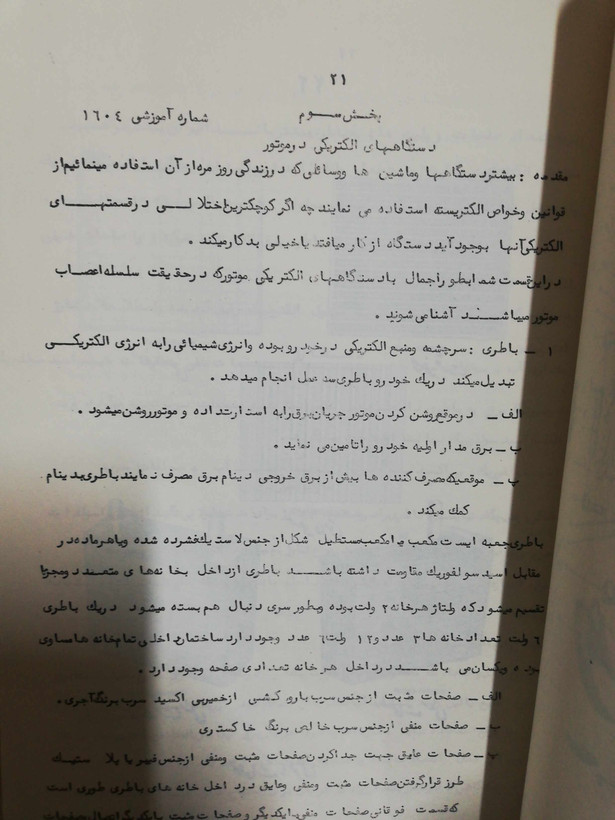 ۲۱
بخش سوم    شماره آموزشی ۱۶۰۴
دستگاههای الکتریکی درموتور
مقدمه : بیشتردستگاهها وماشین ها ووسائلی که درزندگی روز مره از آن استفاده مینمائیم از
قوانین وخواص الکتریسته استفاده می نمایند چه اگر کوچکترین اختلالی درقسمتهای
الکتریکی آنها بوجود آید دستگاه از کار میافتد یا خیلی بد کار میکند .
دراین قسمت شما بطور اجمال با دستگاههای الکتریکی موتور که درحقیقت سلسله اعصاب
موتور میباشند آشنا می شوید .
۱ ـ باطری : سرچشمه ومنبع الکتریکی درخودرو بوده وانرژی شیمیائی را به انرژی الکتریکی
تبدیل میکند دریک خود رو باطری سه عمل انجام میدهد .
الف ـ درموقع روشن کردن موتور جریان برق را به استارت داده و موتور روشن میشود .
ب ـ برق مدار اولیه خود رو را تامین می نماید .
پ ـ موقعیکه مصرف کننده ها بیش از برق خروجی دینام برق مصرف نمایند باطری بدینام
کمک میکند .
باطری جعبه ایست مکعب یا مکعب مستطیل شکل از جنس لاستیک فشرده شده ویا هرماده در
مقابل اسید سولفوریک مقاومت داشته باشد باطری ازداخل بخانه های متعدد ومجزا
تقسیم میشود که ولتاژ هرخانه ۲ ولت بوده وبطور سری دنبال هم بسته میشود دریک باطری
۶ ولت تعداد خانه ها ۳ عدد و ۱۲ ولت ۶ عدد وجود دارد ساختمان داخلی تمام خانه ها مساوی
بوده ویکسان می باشد درداخل هر خانه تعدادی صفحه وجود دارد .
الف ـ صفحات مثبت از جنس سرب با روکشی ازخمیر پی اکسید سرب برنگ آجری .
ب ـ صفحات منفی ازجنس سرب خالص برنگ خاکستری
پ ـ صفحات عایق جهت جدا کردن صفحات مثبت ومنفی ازجنس فیبر یا پلاستیک
طرز قرارگرفتن صفحات مثبت ومنفی وعایق در داخل خانه های باطری طوری است
که قسمت فوقانی صفحات منفی با یکدیگر و صفحات مثبت با یکدیگر اتصال صفحات